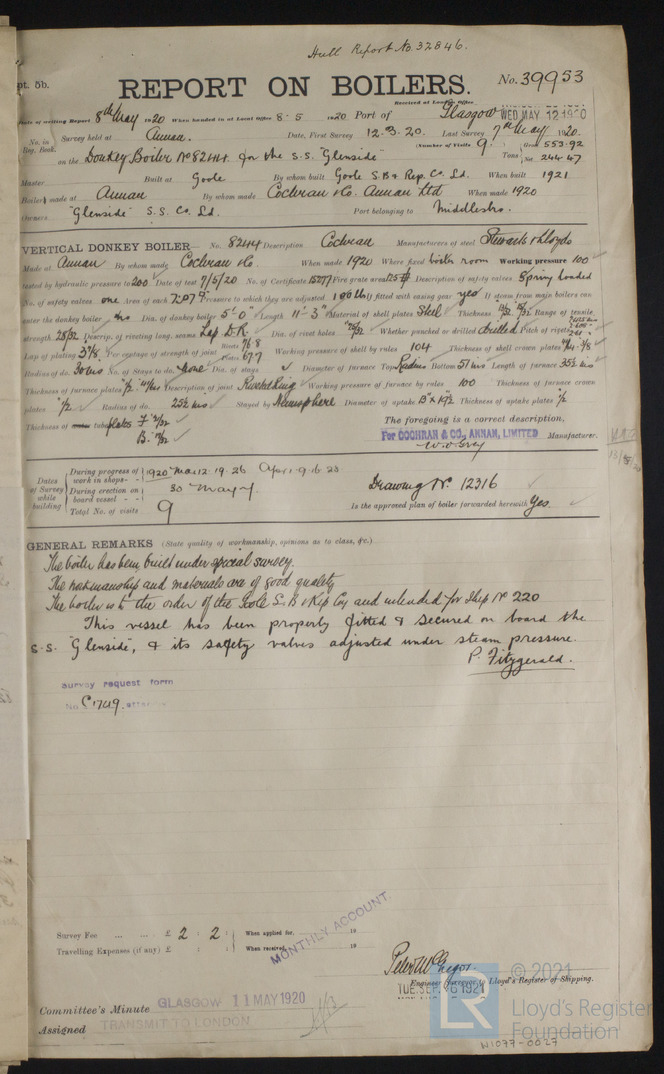 Hull Report No. 32846.
pt. 5b.
REPORT ON BOILERS.
No. 39953
Received at London Office WED. MAY. 12 1920
Date of writing Report 8th May 1920 When handed in at Local Office 8. 5 1920 Port of Glasgow
No. in Reg. Book. Survey held at Annan. Date, First Survey 12.3.20. Last Survey 7th May 1920.
(Number of Visits 9.)
on the Donkey Boiler No 8244 for the S.S. "Glenside" Tons Gross 553.92 Net 244.47
Master Built at Goole By whom built Goole S.B & Rep. Co. Ld. When built 1921
Boiler made at Annan By whom made Cochran & Co. Annan Ltd When made 1920
Owners "Glenside" S.S. Co. Ld. Port belonging to Middlesbro.
VERTICAL DONKEY BOILER— No. 8244 Description Cochran Manufacturers of steel Stewarts & Lloyds
Made at Annan By whom made Cochran & Co. When made 1920 Where fixed boiler room Working pressure 100
tested by hydraulic pressure to 200 Date of test 7/5/20 No. of Certificate 15277 Fire grate area Description of safety valves Spring loaded
No. of safety valves one Area of each 7.07 Pressure to which they are adjusted 100 lb If fitted with easing gear yes If steam from main boilers can
enter the donkey boiler no Dia. of donkey boiler 5'-0" Length 11'-3" Material of shell plates Steel Thickness Range of tensile
strength 28/32 Descrip. of riveting long. seams Lap D.R. Dia. of rivet holes Whether punched or drilled drilled Pitch of rivets
Lap of plating Per centage of strength of joint Rivets 76.8 Plates 67.7 Working pressure of shell by rules 104 Thickness of shell crown plates
Radius of do. 30 ins No. of Stays to do. None Dia. of stays Diameter of furnace Top Radius Bottom 51 ins Length of furnace 35½ ins
Thickness of furnace plates Description of joint Working pressure of furnace by rules 100 Thickness of furnace crown
plates ½ Radius of do. 25½ ins Stayed by Hemisphere Diameter of uptake 13" x 19½ Thickness of uptake plates ½
Thickness of tube plates F B.
The foregoing is a correct description,
For COCHRAN & CO., ANNAN, LIMITED Manufacturer.
Dates of Survey while building
During progress of work in shops - - 1920 Mar. 12. 19. 26 Apr. 1. 9. 16. 23
During erection on board vessel - - - 30 May 7
Total No. of visits 9
Drawing No 12316
Is the approved plan of boiler forwarded herewith Yes.
GENERAL REMARKS (State quality of workmanship, opinions as to class, &c.)
The boiler has been built under special survey.
The workmanship and materials are of good quality
The boiler is to the order of the Goole S.B & Rep Coy and intended for Ship No 220
This vessel has been properly fitted & secured on board the
S.S. "Glenside", & its safety valves adjusted under steam pressure.
P. Fitzgerald.
Survey request form
No. C1749.
Survey Fee ... ... £ 2 : 2 : When applied for, 19
Travelling Expenses (if any) £ : : When received, 19
MONTHLY ACCOUNT
Peter McGregor
Engineer Surveyor to Lloyd's Register of Shipping.
TUE. SEP. 6 1921
Committee's Minute GLASGOW 11 MAY 1920
Assigned TRANSMIT TO LONDON
© 2021
LR
Lloyd's Register
Foundation
W1077-0027